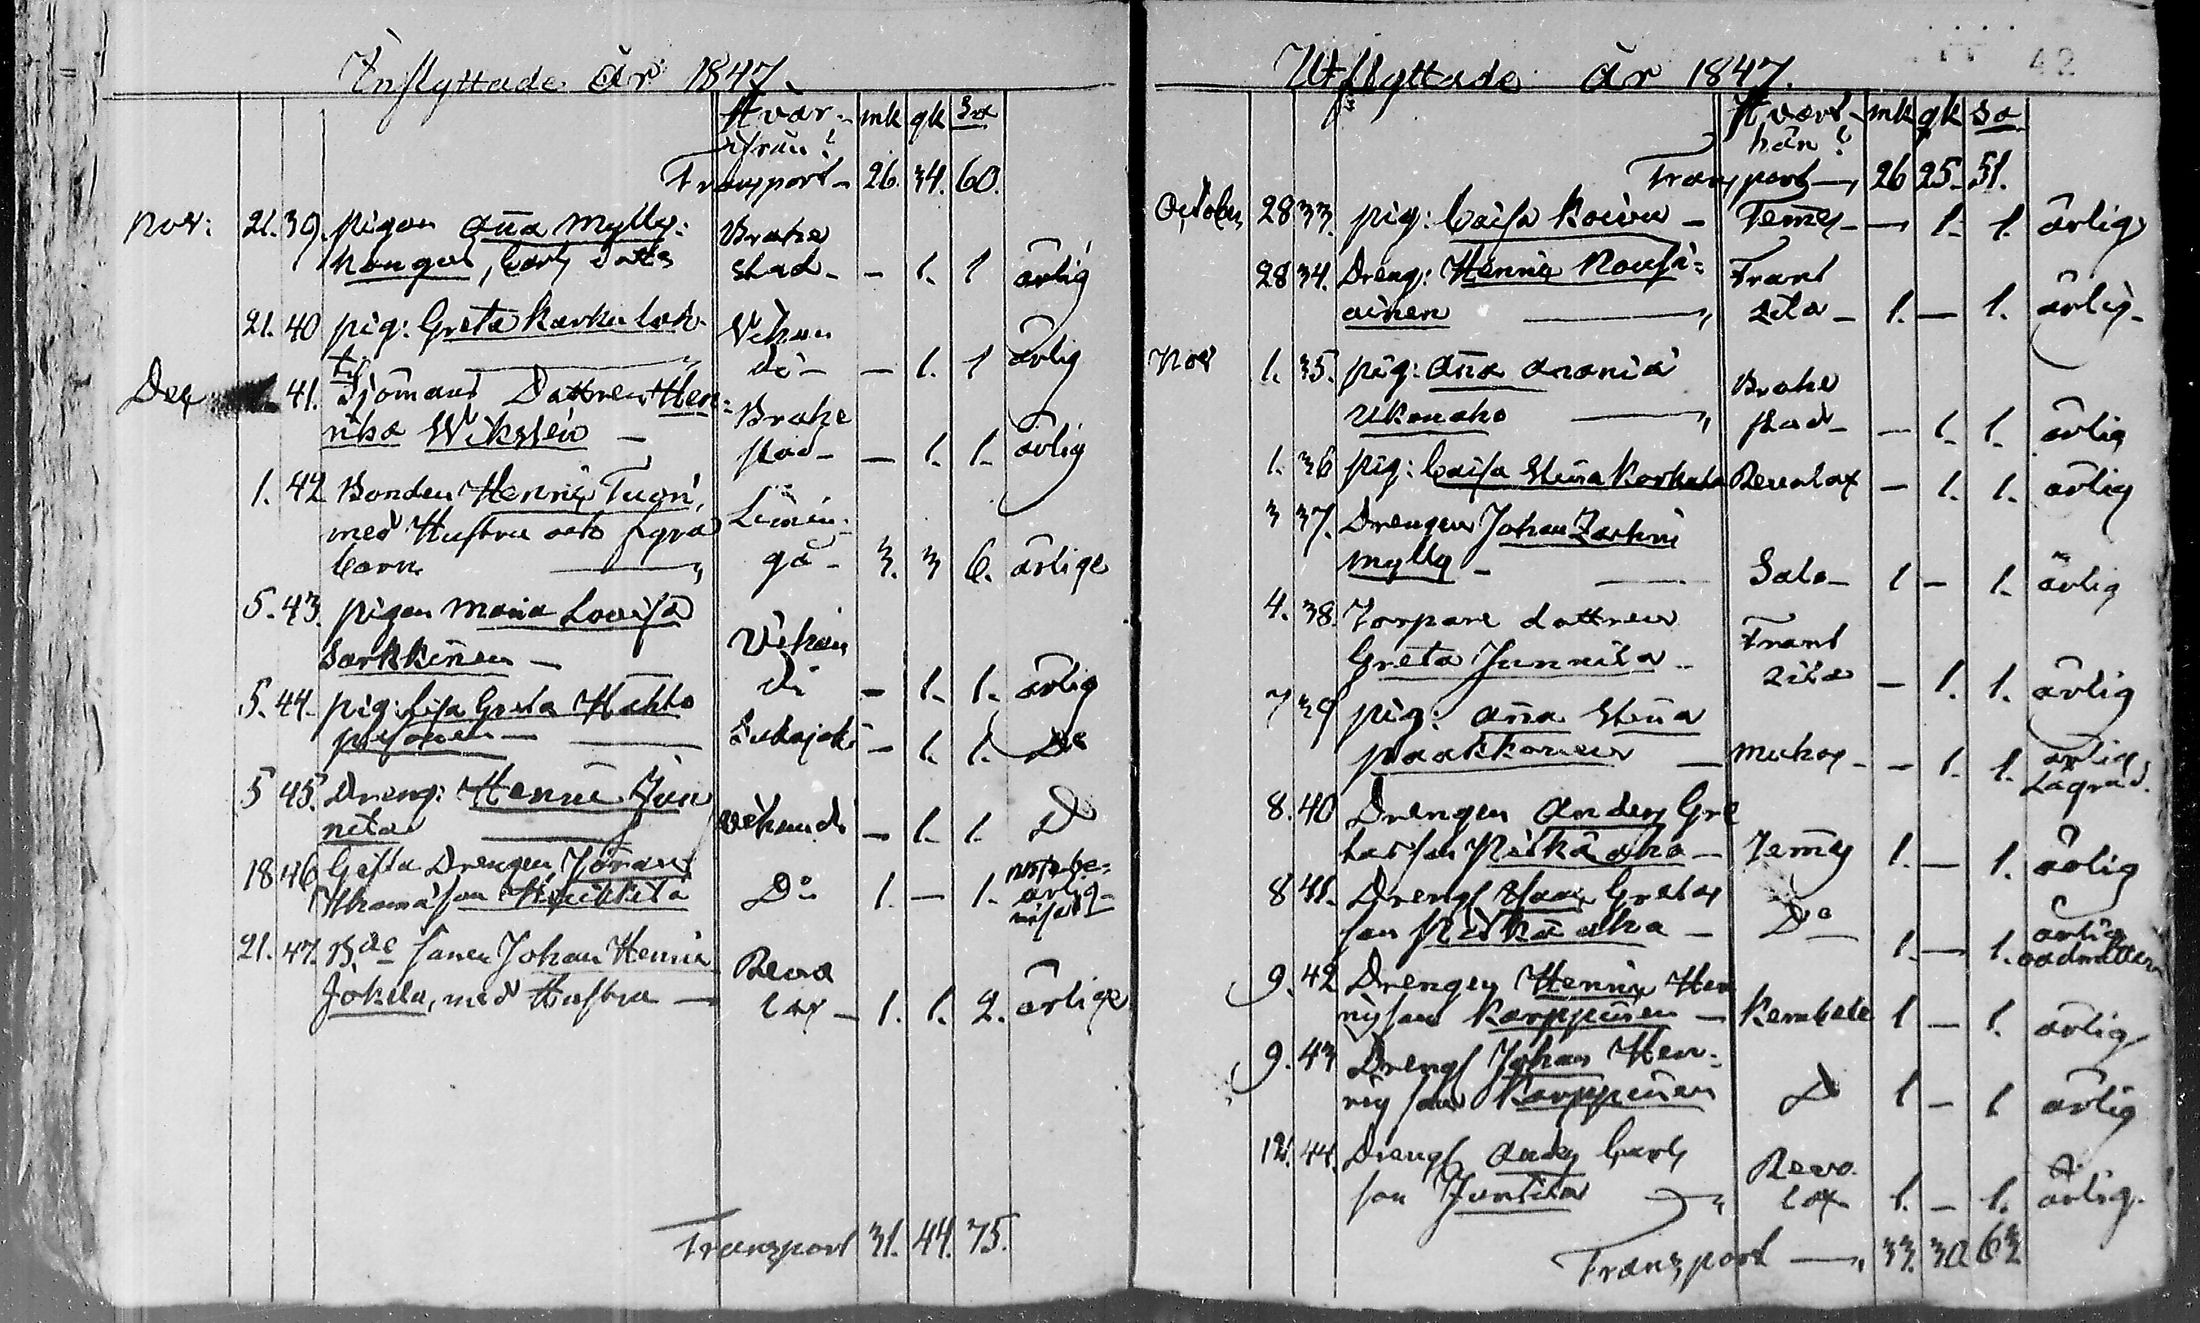 Inflyttade År 1847.
Hvar- mk qk Sa
ifrån?
Transport - 26. 34. 60.
Nov: 21. 39. pigan Aña Mylly:
kangas, Carls dott: Brahe
stad - - 1. 1 ärlig
21. 40 pig: Greta Karhulah
ti Vihan
di - - 1. 1 ärlig
Dec 41. Sjömans Dottren Hen-
rika Wiksten - Brahe
stad - - 1. 1. ärlig
1. 42 Bonden Henric Tuoñ,
med Hustru och fyra Limin-
barn gå - 3. 3 6. ärlige
5. 43. pigan Maria Lovisa
Sarkkinen - Vihan
di - 1. 1. ärlig
5. 44. pig: Lisa Greta
Siikajoki - 1. 1. Do
5 45. Dreng: Henric Jun
nila Vihandi - 1. 1. D
18 46 Gifta Drengen Johan
Thomasson Do 1. - 1.
21. 47. Bde sonen Johan Henric
Jokela, med Hustru - Revo
lax - 1. 1. 2. ärlige
Transport 31. 44. 75.
Utflyttade År 1847.
42
Hvart- mk qk Sa
hän?
Transport - 26 25. 51.
October 28 33. pig: Caisa Koivu - Temes - - 1. 1. ärlig
28 34. Dreng: Henric Kousi-
ainen Frant
sila - 1. - 1. ärlig -
Nov 1. 35. pig: Aña Anania
Ukonaho Brahe
stad - - 1. 1. ärlig
1. 36 pig: Caisa Stina Korkala Revolax - 1. 1. ärlig
3 37. Drengen Johan Zachri
Mylly - Salo - 1 - 1. ärlig
4. 38. Torpare dottren
Greta Junnila - Frant
sila - 1. 1. ärlig
7 39 pig: Aña Stina
Paakkonen - Muhos - - 1. 1. ärlig
Lägrad.
8. 40 Drengen Anders Gre
tasson Piskä aho - Temes 1. - 1. ärlig
8 41. Drengs Isaac Gretas
son Piskä aho - Do 1. - 1. ärlig
oadmitteras
9. 42 Drengen Henric Hen
ricsson Karppinen - Kembele 1 - 1. ärlig
9. 43 Drengs Johan Hen-
ricsson Karppinen D 1 - 1 ärlig
12. 44. Drengs Anders Carls
son Junnila Revo
lax 1. - 1. ärlig.
Transport - 33. 30 63